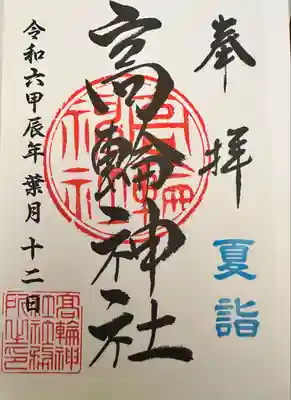 奉拝
夏詣
高輪神社
令和六甲辰年葉月十二日
高輪神
社社務
所之印